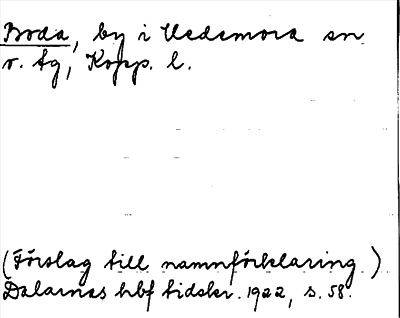 Boda, by i Hedemora sn
v. tg, Kopp. l.
(Förslag till namnförklaring.)
Dalarnas hbf tidskr. 1922, s. 58.